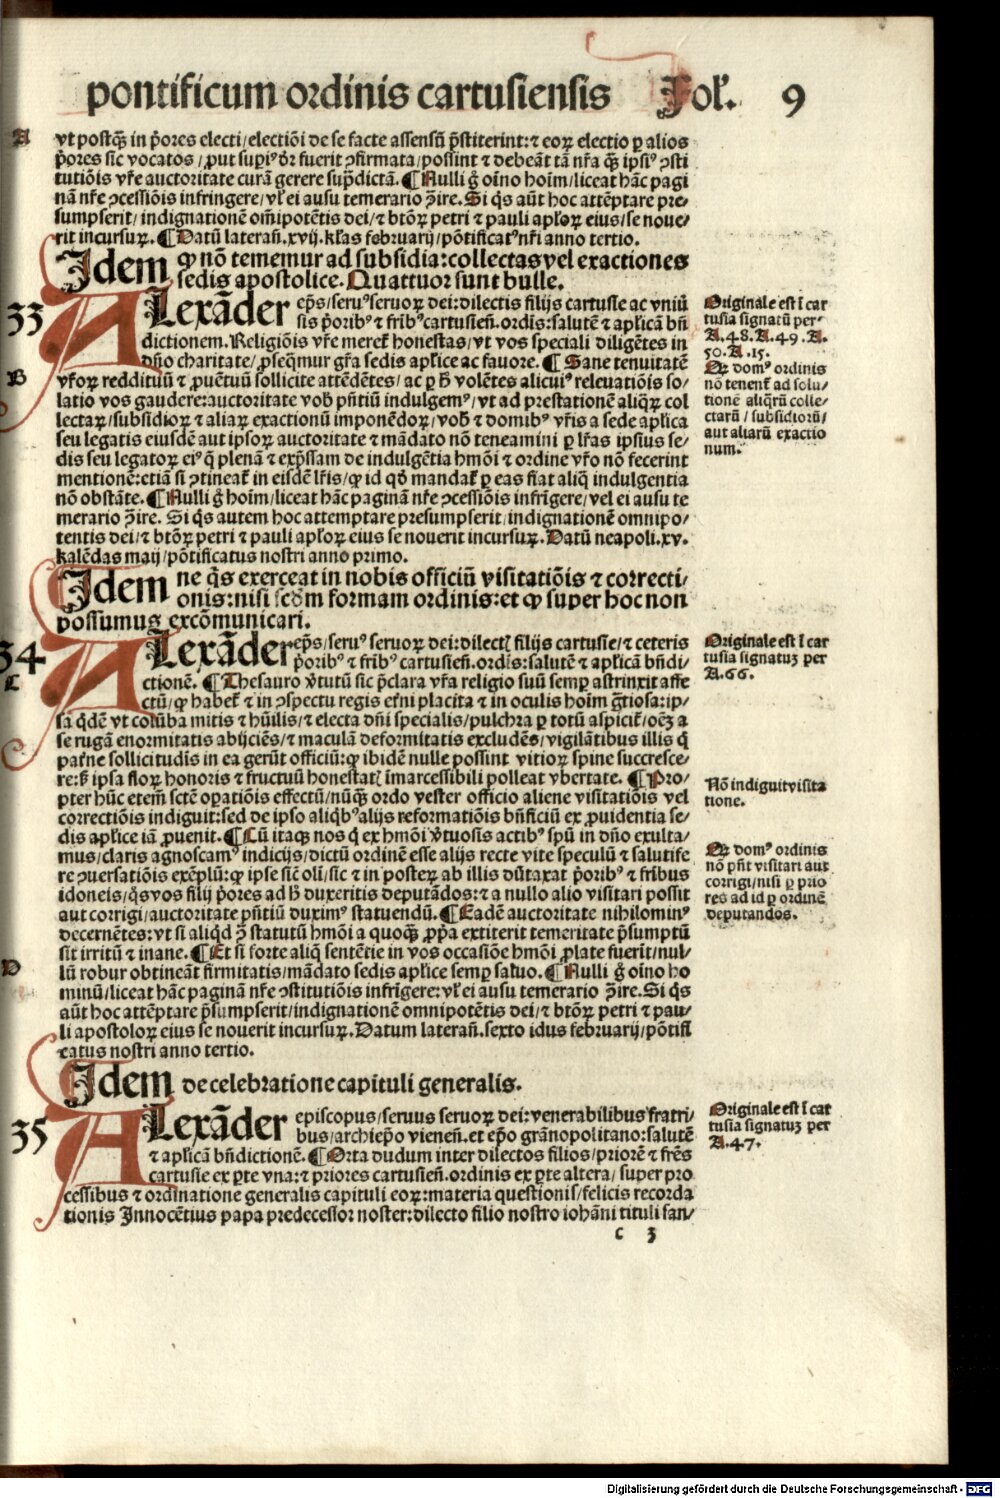 pontificum ordinis cartusiensis Fol. 9
A
vt postq̄ in p̄ores electi/electiōi de se facte assensū p̄stiterint:⁊ eoꝝ electio ꝑ alios
p̄ores sic vocatos/ꝓut supiꝰ dr̄ fuerit ꝯfirmata/possint ⁊ debeāt tā nr̄a q̄ ipsiꝰ ꝯsti
tutiōis vr̄e auctoritate curā gerere sup̄dictā. ¶ Nulli g̊ oīno hoīm/liceat hāc pagi
nā nr̄e ꝯcessiōis infringere/vl̓ ei ausu temerario ꝯ̄ire. Si q̄s aūt hoc attēptare pre-
sumpserit/indignationē om̄ipotētis dei/⁊ btōꝝ petri ⁊ pauli apl̓oꝝ eius/se noue-
rit incursuꝝ. ¶ Datū laterañ. xvij. kl̓as februarij/pōtificatꝰ nr̄i anno tertio.
Idem ꝙ nō tenemur ad subsidia: collectas vel exactiones
sedis apostolice. Quattuor sunt bulle.
33
ALexāder ep̄s/seruꝰ seruoꝝ dei: dilectis filijs cartusie ac vniū
sis p̄oribꝰ ⁊ fr̄ibꝰ cartusieñ. ordīs: salutē ⁊ apl̓icā bñ
dictionem. Religiōis vr̄e meret̓ honestas/vt vos speciali diligētes in
dño charitate/ꝓseq̄mur gr̄a sedis apl̓ice ac fauore. ¶ Sane tenuitatē
B
vr̄oꝝ reddituū ⁊ ꝓuētuū sollicite attēdētes/ac ꝑ ħ volētes alicuiꝰ releuatiōis so-
latio vos gaudere: auctoritate vob̄ pñtiū indulgemꝰ/vt ad prestationē aliq̄ꝝ col
lectaꝝ/subsidioꝝ ⁊ aliaꝝ exactionū imponēdoꝝ/vob̄ ⁊ domibꝰ vr̄is a sede apl̓ica
seu legatis eiusdē aut ipsoꝝ auctoritate ⁊ mādato nō teneamini ꝑ lr̄as ipsius se-
dis seu legatoꝝ eiꝰ q̄ plenā ⁊ exp̄ssam de indulgētia hmōi ⁊ ordine vr̄o nō fecerint
mentionē: etiā si ꝯtineat̓ in eisdē lr̄is/ꝙ id qd̄ mandat̓ ꝑ eas fiat aliq̄ indulgentia
nō obstāte. ¶ Nulli g̊ hoīm/liceat hāc paginā nr̄e ꝯcessiōis infrīgere/vel ei ausu te
merario ꝯ̄ire. Si q̄s autem hoc attemptare presumpserit/indignationē omnipo-
tentis dei/⁊ btōꝝ petri ⁊ pauli apl̓oꝝ eius se nouerit incursuꝝ. Datū neapoli. xv.
kalēdas maij/pōtificatus nostri anno primo.
Originale est ī car
tusia signatū per
A.48. A.49. A.
50. A.15.
Qꝙ domꝰ ordinis
nō tenent̓ ad solu-
tionē aliq̄rū colle-
ctarū/subsidiorū/
aut aliarū exactio
num.
Idem ne q̄s exerceat in nobis officiū visitatiōis ⁊ correcti/
onis: nisi scd̄m formam ordinis: et ꝙ super hoc non
possumus excōmunicari.
34
ALexāder ep̄s/seruꝰ seruoꝝ dei: dilectꝭ filijs cartusie/⁊ ceteris
p̄oribꝰ ⁊ fr̄ibꝰ cartusieñ. ordīs: salutē ⁊ apl̓icā bñdi-
C
ctionē. ¶ Thesauro v̓tutū sic p̄clara vr̄a religio suū semp astrinxit affe
ctū/ꝙ habet̓ ⁊ in ꝯspectu regis et̓ni placita ⁊ in oculis hoīm gr̄tiosa: ip-
sa q̄dē vt colūba mitis ⁊ hūilis/⁊ electa dñi specialis/pulchra ꝑ totū aspicit̓/oēꝫ a
se rugā enormitatis abijciēs/⁊ maculā deformitatis excludēs/vigilātibus illis q̄
pat̓ne sollicitudis in ea gerūt officiū: ꝙ ibidē nulle possint vitioꝝ spine succresce-
re: s̄ ipsa floꝝ honoris ⁊ fructuū honestatꝭ īmarcessibili polleat vbertate. ¶ Pro-
pter hūc etem̄ sctē oꝑatiōis effectū/nūq̄ ordo vester officio aliene visitatiōis vel
correctiōis indiguit: sed de ipso aliq̄bꝰ alijs reformatiōis bñficiū ex ꝓuidentia se-
dis apl̓ice iā ꝓuenit. ¶ Cū itaqꝫ nos q̄ ex hmōi v̓tuosis actibꝰ spū in dño exulta-
mus/claris agnoscamꝰ indicijs/dictū ordinē esse alijs recte vite speculū ⁊ salutife
re ꝯuersatiōis exēplū: ꝙ ipse siē oli/sic ⁊ in posteꝝ ab illis dūtaxat p̄oribꝰ ⁊ fr̄ibus
idoneis/q̄s vos filij p̄ores ad ħ duxeritis deputādos: ⁊ a nullo alio visitari possit
aut corrigi/auctoritate pñtiū duximꝰ statuendū. ¶ Eadē auctoritate nihilominꝰ
decernētes: vt si aliqd̄ ꝯ̄ statutū hmōi a quoqꝫ ꝓp̄a extiterit temeritate p̄sumptū
sit irritū ⁊ inane. ¶ Et si forte aliq̄ sentētie in vos occasiōe hmōi ꝓlate fuerit/nul-
D
lū robur obtineāt firmitatis/mādato sedis apl̓ice semp saluo. ¶ Nulli g̊ oīno ho
minū/liceat hāc paginā nr̄e ꝯstitutiōis infrīgere: vl̓ ei ausu temerario ꝯ̄ire. Si q̄s
aūt hoc attēptare p̄sumpserit/indignationē omnipotētis dei/⁊ btōꝝ petri ⁊ pau-
li apostoloꝝ eius se nouerit incursuꝝ. Datum laterañ. sexto idus februarij/pōtifi
catus nostri anno tertio.
Originale est ī car
tusia signatuꝫ per
A.66.
Nō indiguit visita
tione.
Qꝙ domꝰ ordinis
nō pñt visitari aut
corrigi/nisi ꝑ prio
res ad id ꝑ ordinē
deputandos.
Idem de celebratione capituli generalis.
35
ALexāder episcopus/seruus seruoꝝ dei: venerabilibus fratri/
bus/archiep̄o vieneñ. et ep̄o grānopolitano: salutē
⁊ apl̓icā bñdictionē. ¶ Orta dudum inter dilectos filios/priorē ⁊ fr̄es
cartusie ex ꝑte vna: ⁊ priores cartusieñ. ordinis ex ꝑte altera/super pro
cessibus ⁊ ordinatione generalis capituli eoꝝ: materia questionis/felicis recorda
tionis Innocētius papa predecessor noster: dilecto filio nostro iohāni tituli san/
Originale est ī cat
tusia signatuꝫ per
A.47.
c 3
Digitalisierung gefördert durch die Deutsche Forschungsgemeinschaft - DFG